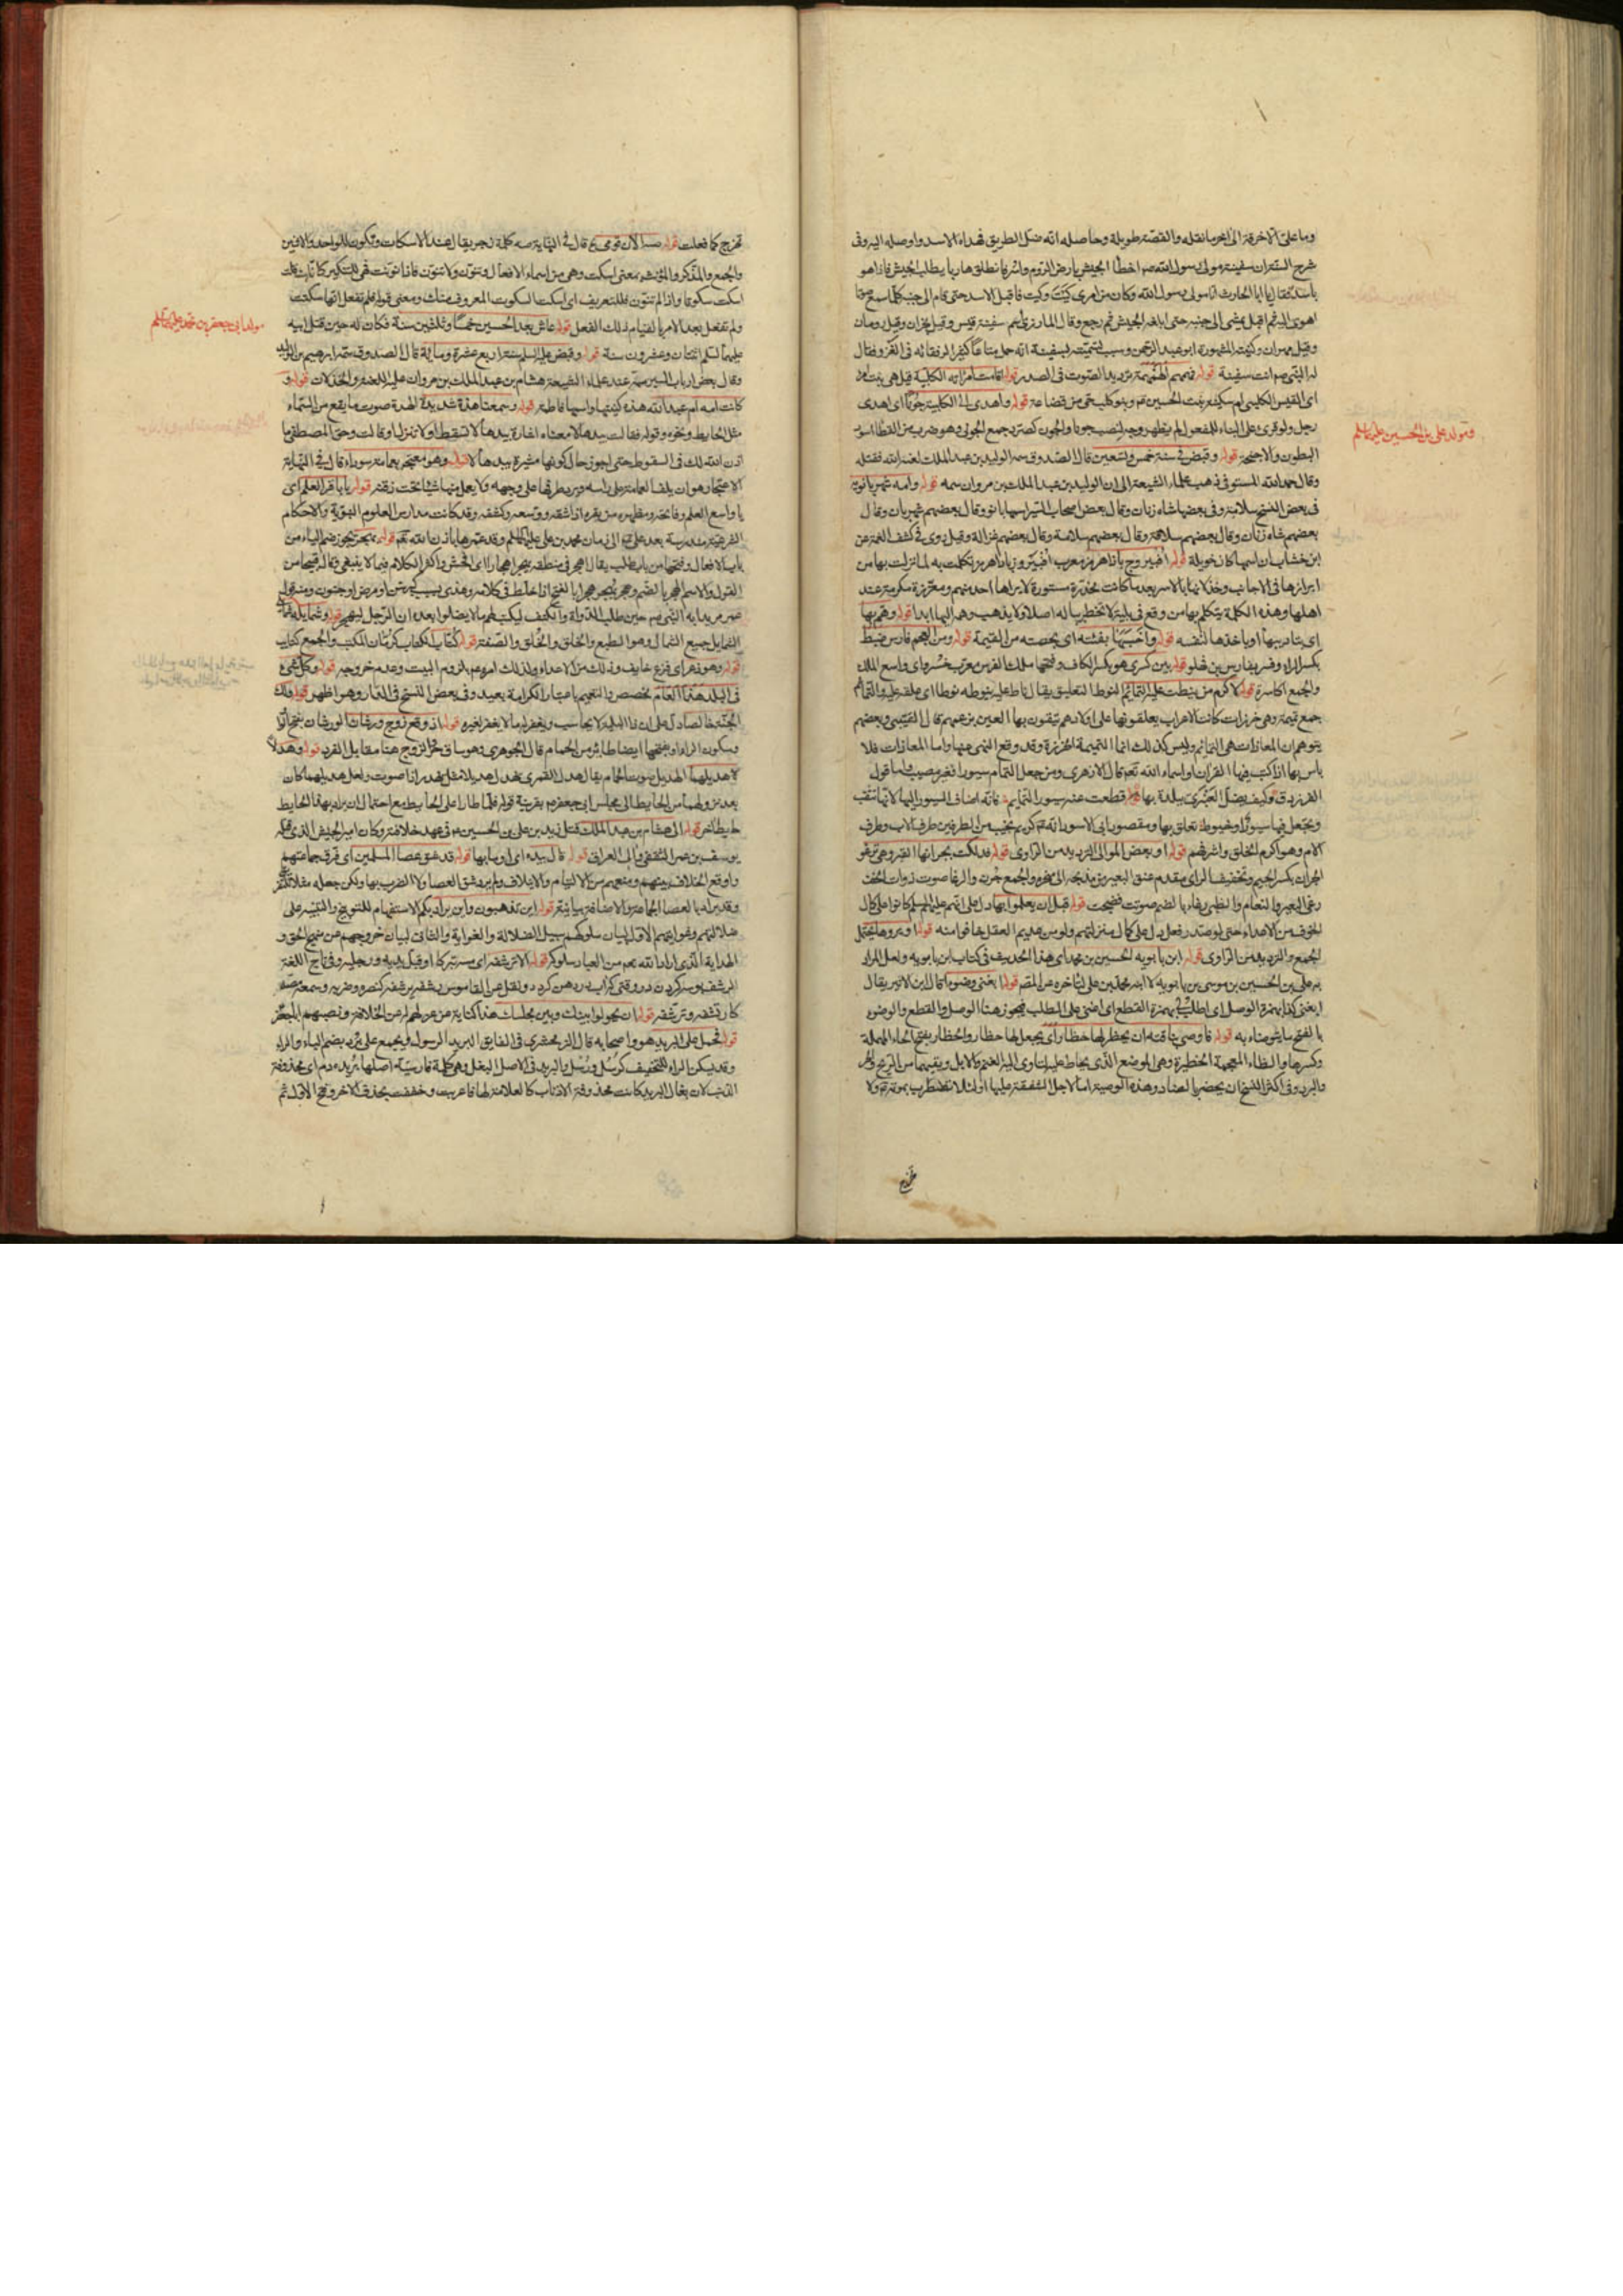 وما على الاخرقة الى اخر ما نقله والقصة طويلة وحاصله انه ضل الطريق فهداه الاسد واوصله اليه وفى
شرح السنة ان سفينة مولى رسول الله ص اخطا الجيش بارض الروم واسر فانطلق هاربا يطلب الجيش فاذا هو
باسد فقال يا ابا الحارث انا مولى رسول الله وكان من امرى كيت وكيت فاقبل الاسد حتى قام الى جنبه كلما سمع صوتا
اهوى اليه ثم اقبل يمشى الى جنبه حتى ابلغه الجيش ثم رجع وقال المازرى اسم سفينة قيس وقيل نجران وقيل رومان
وقيل مهران وكنيته المشهورة ابو عبد الرحمن وسبب تسميته بسفينة انه حمل متاعا كثيرا لرفقائه فى الغزو فقال
له النبى ص انت سفينة قوله فهمهم الهمهمة ترديد الصوت فى الصدر قوله اقامت امراته الكلبية قيل هى بنت امرء
القيس الكلبى ام سكينة بنت الحسين ع وبنو كلب حى من قضاعة قوله واهدى الى الكلبية جونا اى اهدى
رجل ولو قرئ على البناء للمفعول لم يظهر وجه لنصب جونا والجون كصرد جمع الجونى وهو ضرب من القطا اسود
البطون والاجنحة قوله وقبض فى سنة خمس وتسعين قال الصدوق سمه الوليد بن عبد الملك لعنه الله فقتله
وقال حمد الله المستوفى ذهب علماء الشيعة الى ان الوليد بن عبد الملك بن مروان سمه قوله وامه شهربانويه
فى بعض النسخ سلامة وفى بعضها شاه زنان وقال بعض اصحاب السير اسمها بانو وقال بعضهم شهربان وقال
بعضهم شاه زنان وقال بعضهم سلافة وقال بعضهم سلامة وقال بعضهم غزالة وقيل روى فى كشف الغمة عن
ابن خشاب ان اسمها كان خويلة قوله افيروج بادا هرمز
ابرازها فى الاجانب وخذلانها بالاسر بعد ما كانت مخدرة مستورة لا يراها احد منهم ومعززة مكرمة عند
اهلها وهذه الكلمة يتكلم بها من وقع فى بلية لا تخطر بباله اصلا ولا يذهب وهمه اليها ابدا قوله وهم بها
اى بتاديبها او باخذها لنفسه قوله واحسبها بفيئه اى بحصته من الغنيمة قوله ومن العجم فارس ضبط
بكسر الراء وفسر بفارس بن فهلو قوله بين كسرى هو بكسر الكاف وفتحها ملك الفرس معرب خسرو اى واسع الملك
والجمع اكاسرة قوله لاكرم من نيطت عليه التمائم النوط التعليق يقال ناط عليه ينوطه نوطا اى علقه عليه والتمائم
جمع تميمة وهى خرزات كانت الاعراب يعلقونها على اولادهم يتقون بها العين بزعمهم قال القتيبى وبعضهم
يتوهم ان المعاذات هى التمائم وليس كذلك انما التميمة الخرزة وقد وقع النهى عنها واما المعاذات فلا
باس بها اذا كتب فيها القران او اسماء الله تعم قال الازهرى ومن جعل التمائم سيورا فغير مصيب واما قول
الفرزدق وكيف يضل العنبرى ببلدة بها قطعت عنه سيور التمايم فانه اضاف السيور اليها لانها تثقب
ويجعل فيها سيورا وخيوط تعلق بها ومقصود ابى الاسود انه ع كريم نجيب من الطرفين طرف الاب وطرف
الام وهو اكرم الخلق واشرفهم قوله او بعض الموالى الترديد من الراوى قوله فدلكت بجرانها القبر وهى ترغو
الجران بكسر الجيم وتخفيف الراى مقدم عنق البعير من مذبحه الى منحره والجمع جرن والرغا صوت ذوات الخف
رغى البعير والنعام والظبى رغاء بالضم صوتت فضجت قوله قبل ان يعلموا بها دل على انهم عليهم السلم كانوا على كمال
الخوف من الاعداء حتى
الجمع والترديد من الراوى قوله ابن بابويه الحسين بن محمد اى هذا الحديث فى كتاب ابن بابويه ولعل المراد
به على بن الحسين بن موسى بن بابويه لا ابنه محمد بن على لتاخره عن المصنف قوله ابغنى وضوءا قال ابن الاثير يقال
ابغنى كذا بهمزة الوصل اى اطلب لى بهمزة القطع اى اعنى على الطلب فيجوز هنا الوصل والقطع والوضوء
بالفتح ما يتوضأ به قوله فاوصى بناقته ان يحظر لها حظار اى يجعل لها حظار والحظار بفتح الحاء المهملة
وكسرها والظاء المعجمة الحظيرة وهى الموضع الذى يحاط عليه لتاوى اليه الغنم والابل ويقيهما من الريح والحر
والبرد وفى اكثر النسخ ان يحضر بالضاد وهذه الوصية اما لاجل الشفقة عليها او لئلا تضطرب بموته ع ولا
ومولد على بن الحسين عليهما السلم
تخرج
تخرج كما فعلت قوله صه الان قومى ع قال فى النهاية صه كلمة زجر يقال عند الاسكات وتكون للواحد والاثنين
والجمع والمذكر والمؤنث بمعنى اسكت وهى من اسماء الافعال وتنون ولا تنون فاذا نونت فهى للتنكير كانك قلت
اسكت سكوتا واذا لم تنون فللتعريف اى اسكت السكوت المعروف منك ومعنى قوله فلم تفعل انها سكتت
ولم تفعل بعد الامر بالقيام ذلك الفعل قوله عاش بعد الحسين خمسا وثلثين سنة فكان له حين قتل ابيه
عليهما السلم اثنتان وعشرون سنة قوله وقبض عليه السلم سنة اربع عشرة ومائة قال الصدوق سمه ابراهيم بن الوليد
وقال بعض ارباب السير سمه عند علماء الشيعة هشام بن عبد الملك بن مروان عليه اللعنة والخذلان قوله و
كانت امه ام عبد الله هذه كنيتها واسمها فاطمة قوله وسمعنا هدة شديدة الهدة صوت ما يقع من السماء
مثل الحايط ونحوه وقوله فقالت بيدها لا معناه اشارة بيدها لا تسقط او لا تنزل او قالت وحق المصطفى ما
اذن الله لك فى السقوط حتى اجوز حال كونها مشيرة بيدها لا قوله وهو معتجر بعمامة سوداء قال فى النهاية
الاعتجار هو ان يلف العمامة على راسه ويرد طرفها على وجهه ولا يعمل منها شيئا تحت ذقنه قوله يا باقر العلم اى
يا واسع العلم وفاتحه ومظهره من بقره اذا شقه ووسعه وكشفه وقد كانت مدارس العلوم النبوية والاحكام
الشرعية مندرسة بعد على ع الى زمان محمد بن على عليهما السلم وقد عمرها باذن الله تعم قوله يهجر يجوز ضم الياء من
باب الافعال وفتحها من باب طلب يقال اهجر فى منطقه يهجر اهجارا اى افحش واكثر الكلام فيما لا ينبغى وقال قبيحا من
القول والاسم الهجر بالضم وهجر يهجر هجرا بالفتح اذا خلط فى كلامه وهذى بسبب كبر سن او مرض او جنون ومنه قول
عمر مريدا به النبى ص حين طلب الدواة والكتف ليكتب لهم ما لا يضلوا بعده ان الرجل ليهجر قوله وشمايله شمائلى
الشمايل جمع الشمال وهو الطبع والخلق والخلق والصفة قوله كتاب الكتاب كرمان المكتب والجمع كتاتيب
قوله وهو ذعر اى فزع خايف وذلك من الاعداء ولذلك امره ع بلزوم البيت وعدم خروجه قوله وكل شىء
فى البلد هذا العام تخصص والتعميم باعتبار الكرامة بعيد وفى بعض النسخ فى الدار وهو اظهر قوله ولك
الجنة فالصادل على ان ذا البلية لا يحاسب ويغفر له ما لا يغفر لغيره قوله اذ وقع زوج ورشان الورشان بفتح الواو
وسكون الراء وبفتحها ايضا طائر من الحمام قال الجوهرى وهو ساق حر الزوج هنا مقابل الفرد قوله وهدلا
هديلهما الهديل صوت الحمام يقال هدل القمرى يهدل هديلا مثل يهدر اذا صوت ولعل هديلهما كان
بعد نزولهما من الحايط الى مجلس ابى جعفر ع بقرينة قوله فلما طارا على الحايط مع احتمال ان يراد بهذا الحايط
حايطا اخر قوله الى هشام بن عبد الملك قتل زيد بن على بن الحسين ع فى عهد خلافته وكان امير الجيش الذى
يوسف بن عمر الثقفى والى العراق قوله قال بيده اى اومأ بها قوله قد شق عصا المسلمين اى فرق جماعتهم
واوقع الخلاف بينهم ومنعهم من الالتيام والايلاف ولم يرد شق العصا ولا الضرب بها ولكن جعله مثلا
وقد يراد بالعصا الجماعة والاضافة بيانية قوله اين تذهبون واين يراد بكم الاستفهام للتوبيخ والتنبيه على
ضلالتهم وغوايتهم الاول لبيان سلوكهم سبيل الضلالة والغواية والثانى لبيان خروجهم عن منهج الحق و
الهداية الذى اراد الله تعم من العباد سلوكه قوله الا ترشفه اى مسه تبركا او قبل يديه ورجليه وفى تاج اللغة
الرشف بوسه كردن
كارتشفه وترشفه قوله ان يحولوا بينك وبين مجلسك هذا كناية عن عزلهم له عن الخلافة ونصبهم ابا جعفر
قوله فحمل على البريد هو واصحابه قال الزمخشرى فى الفايق البريد الرسول ويجمع على برد بضم الباء والراء
وقد يسكن الراء للتخفيف كرسل ورسل والبريد فى الاصل البغل وهى كلمة فارسية اصلها بريده دم اى محذوفة
الذنب لان بغال البريد كانت محذوفة الاذناب كالعلامة لها فاعربت وخففت بحذف الاخر وفتح الاول ثم
مولد ابى جعفر محمد بن على عليهما السلم